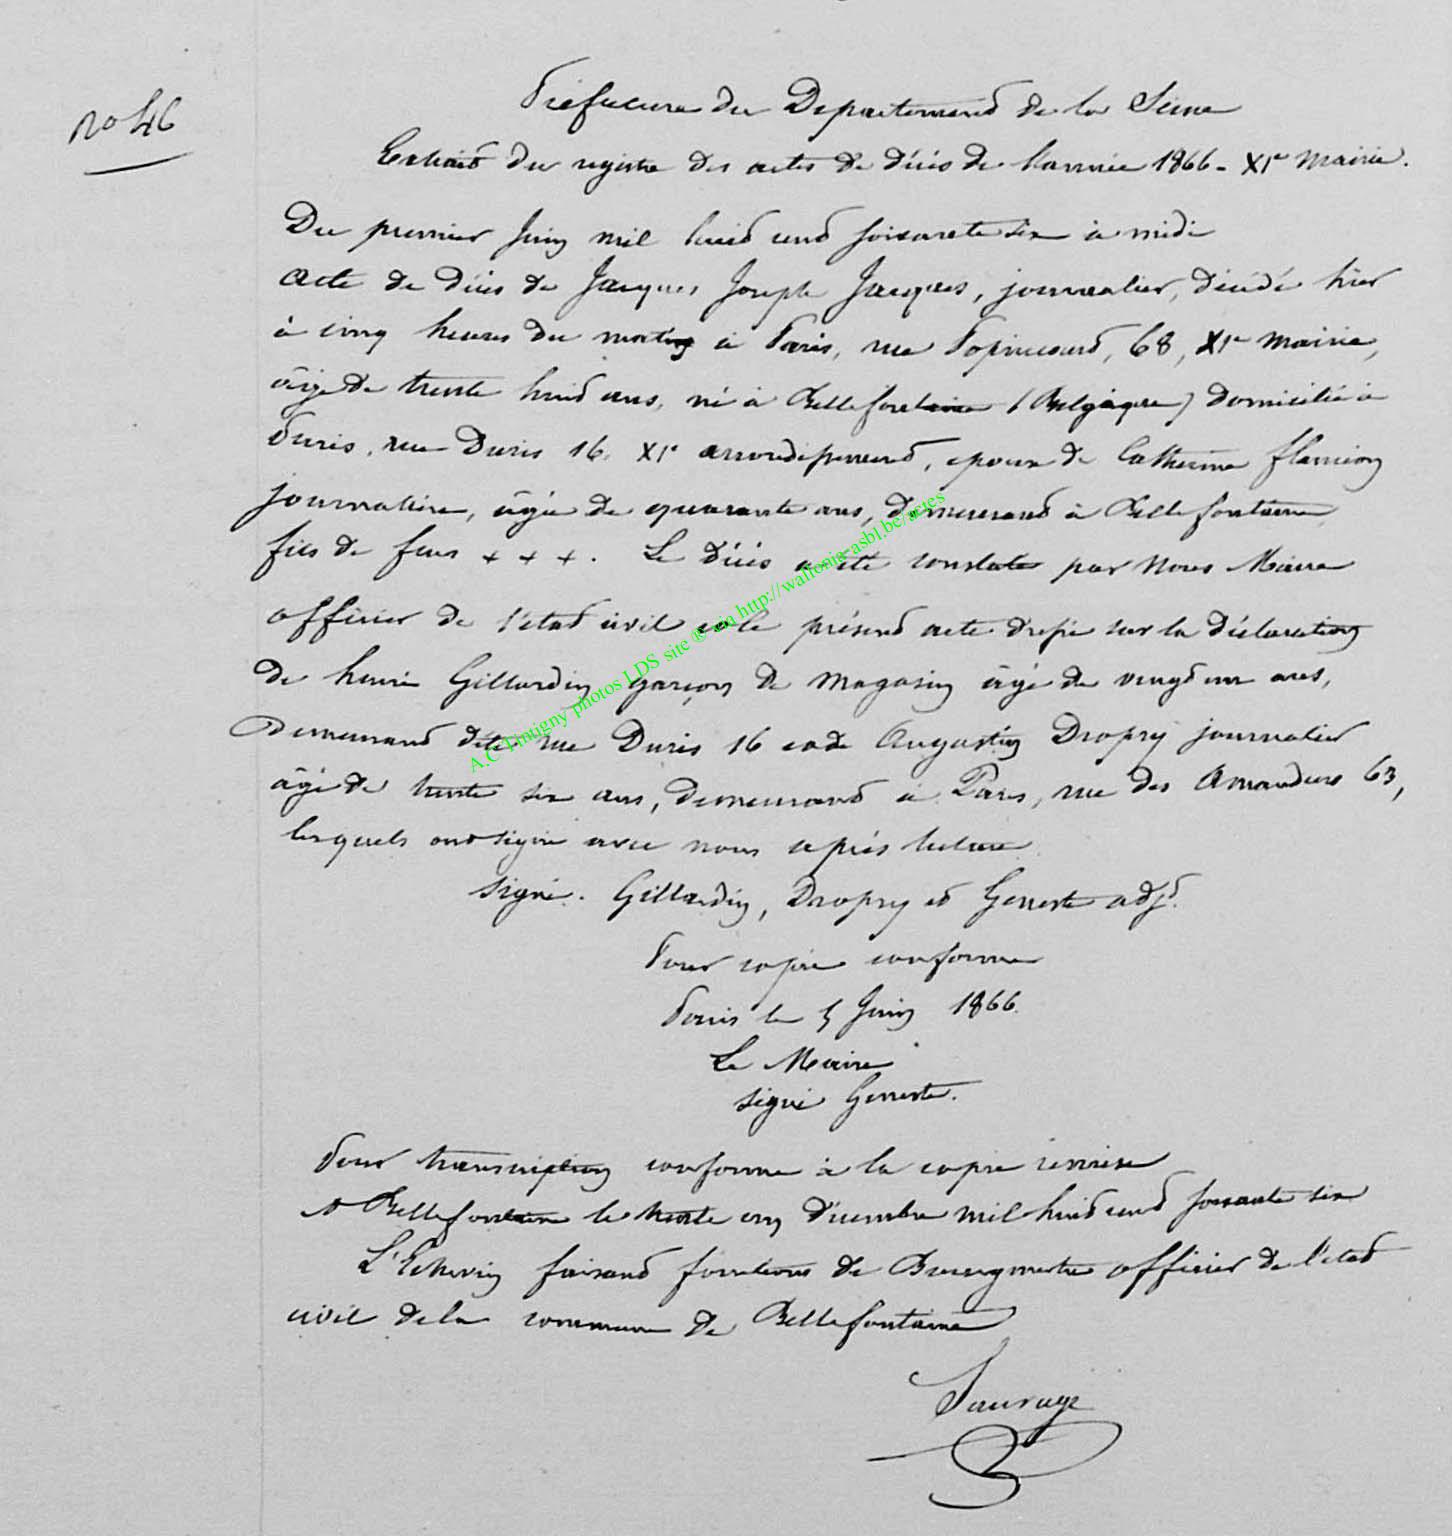 No 46
Préfecture du Departement de la Seine
Extrait du registre des actes de décès de l'année 1866 - XIe Mairie.
Du premier Juin mil huit cent soixante six à midi
acte de décès de Jacques Joseph Jacques, journalier, décédé hier
à cinq heures du matin à Paris, rue Popincourt, 68, XIe Mairie,
âgé de trente huit ans, né à Bellefontaine (Belgique) domicilié à
Paris, rue Duris 16. XIe arrondissement, epoux de Catherine flamion
journalière, âgée de quarante ans, demeurant à Bellefontaine,
fils de feus + + +. Le décès a été constaté par Nous Maire
officier de l'etat civil et le présent acte dressé sur la déclaration
de henri Gillardin garçon de Magasin âgé de vingt un ans,
Demeurant dite rue Duris 16 et de Augustin Dropsy journalier
âgé de trente six ans, demeurant à Paris, rue des Amandiers 63,
lesquels ont signé avec nous après lecture
signé. Gillardin, Dropsy et Genreste adjt.
Pour copie conforme
Paris le 5 Juin 1866.
Le Maire
signé Genreste.
Pour transcription conforme à la copie remise
A Bellefontaine le trente un décembre mil huit cent soixante six
L'Echevin faisant fonctions de Bourgmestre officier de l'etat
civil de la commune de Bellefontaine
Sauvage
A.C Tintigny photos LDS site ® via http://wallonia-asbl.be/actes